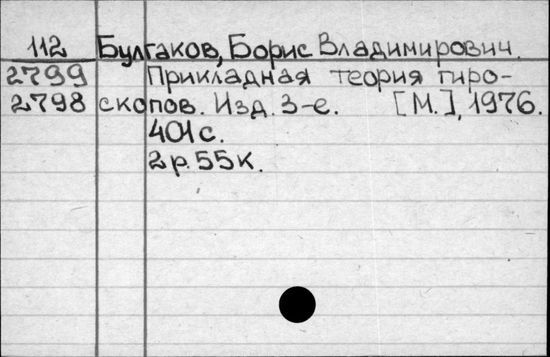 112 Булгаков, Борис Владимирович.
2799 Прикладная теория гиро-
2798 скопов. Изд. 3-е. [М.], 1976.
401 с.
2 р. 55 к.